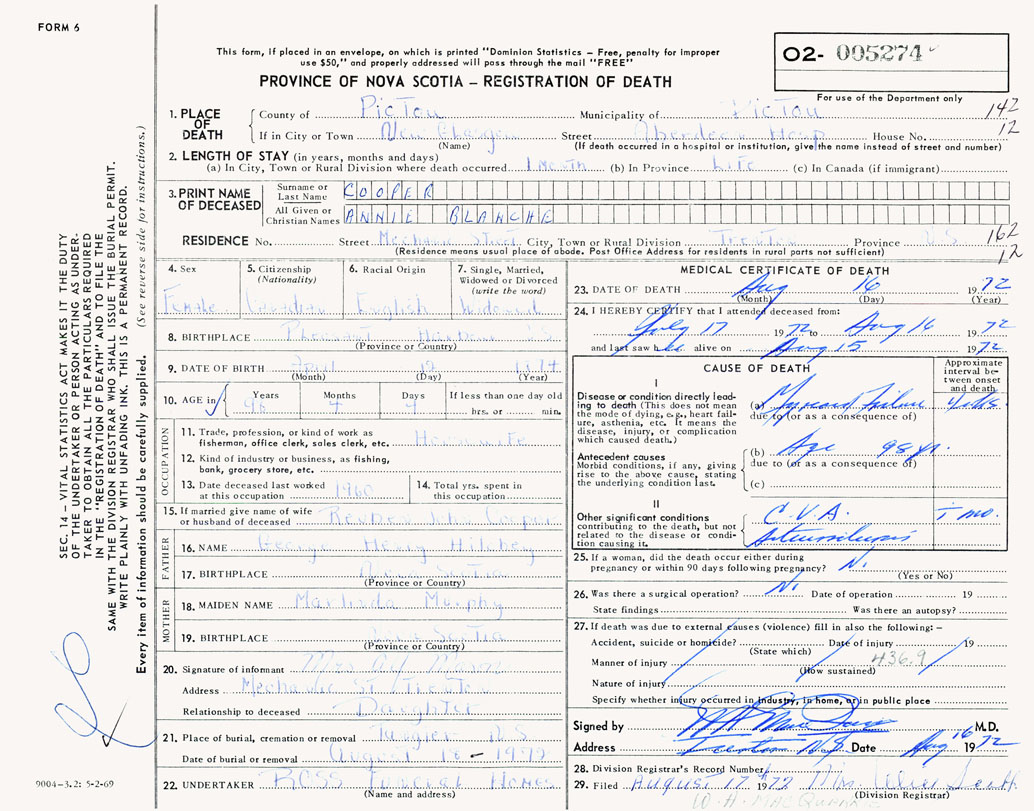 FORM 6
This form, if placed in an envelope, on which is printed "Dominion Statistics - Free, penalty for improper
use $50," and properly addressed will pass through the mail "FREE"
O2- 005274
PROVINCE OF NOVA SCOTIA - REGISTRATION OF DEATH
For use of the Department only
1. PLACE OF DEATH
County of Pictou Municipality of Pictou 142
If in City or Town New Glasgow Street Aberdeen Hosp House No. 12
(Name) (If death occurred in a hospital or institution, give the name instead of street and number)
2. LENGTH OF STAY (in years, months and days)
(a) In City, Town or Rural Division where death occurred 1 Month (b) In Province Life (c) In Canada (if immigrant)
3. PRINT NAME OF DECEASED
Surname or Last Name COOPER
All Given or Christian Names ANNIE BLANCHE
RESIDENCE No. Street Mechanic Street City, Town or Rural Division Trenton Province N.S. 162
(Residence means usual place of abode. Post Office Address for residents in rural parts not sufficient) 12
4. Sex
Female
5. Citizenship (Nationality)
Canadian
6. Racial Origin
English
7. Single, Married, Widowed or Divorced (write the word)
Widowed
8. BIRTHPLACE Pleasant Harbour N.S.
(Province or Country)
9. DATE OF BIRTH April 12
(Month) (Day) (Year)
10. AGE in Years Months Days If less than one day old
98 4 4 hrs. or min.
OCCUPATION
11. Trade, profession, or kind of work as fisherman, office clerk, sales clerk, etc. Housewife
12. Kind of industry or business, as fishing, bank, grocery store, etc.
13. Date deceased last worked at this occupation 1960
14. Total yrs. spent in this occupation
15. If married give name of wife or husband of deceased Reuben John Cooper
FATHER
16. NAME George Henry Hilchey
17. BIRTHPLACE Nova Scotia
(Province or Country)
MOTHER
18. MAIDEN NAME Marlinda Murphy
19. BIRTHPLACE Nova Scotia
(Province or Country)
20. Signature of informant Mrs
Address Mechanic St Trenton
Relationship to deceased Daughter
21. Place of burial, cremation or removal Tangier N.S.
Date of burial or removal August 18 - 1972
22. UNDERTAKER ROSS Funeral Homes
(Name and address)
MEDICAL CERTIFICATE OF DEATH
23. DATE OF DEATH Aug 16 1972
(Month) (Day) (Year)
24. I HEREBY CERTIFY that I attended deceased from:
July 17 1972 to Aug 16 1972
and last saw her alive on Aug 15 1972
CAUSE OF DEATH
Approximate interval between onset and death
I
Disease or condition directly leading to death (This does not mean the mode of dying, e.g., heart failure, asthenia, etc. It means the disease, injury, or complication which caused death.)
(a) Myocard Failure
due to (or as a consequence of)
Antecedent causes
Morbid conditions, if any, giving rise to the above cause, stating the underlying condition last.
(b) Age 98 yr.
due to (or as a consequence of)
(c)
II
Other significant conditions contributing to the death, but not related to the disease or condition causing it.
C.V.A. 1 mo.
Arteriosclerosis
25. If a woman, did the death occur either during
pregnancy or within 90 days following pregnancy? No
(Yes or No)
26. Was there a surgical operation? No Date of operation 19
State findings Was there an autopsy?
27. If death was due to external causes (violence) fill in also the following: -
Accident, suicide or homicide? Date of injury 19
(State which)
Manner of injury 436.9
(How sustained)
Nature of injury
Specify whether injury occurred in industry, in home, or in public place
Signed by M.D.
Address Trenton N.S. Date Aug 16 1972
28. Division Registrar's Record Number
29. Filed August 17 1972 Mrs.
(Division Registrar)
SEC. 14 - VITAL STATISTICS ACT MAKES IT THE DUTY
OF THE UNDERTAKER OR PERSON ACTING AS UNDER-
TAKER TO OBTAIN ALL THE PARTICULARS REQUIRED
IN THE "REGISTRATION OF DEATH" AND TO FILE THE
SAME WITH THE DIVISION REGISTRAR WHO SHALL ISSUE THE BURIAL PERMIT.
WRITE PLAINLY WITH UNFADING INK. THIS IS A PERMANENT RECORD.
Every item of information should be carefully supplied. (See reverse side for instructions.)
9004-3.2: 5-2-69